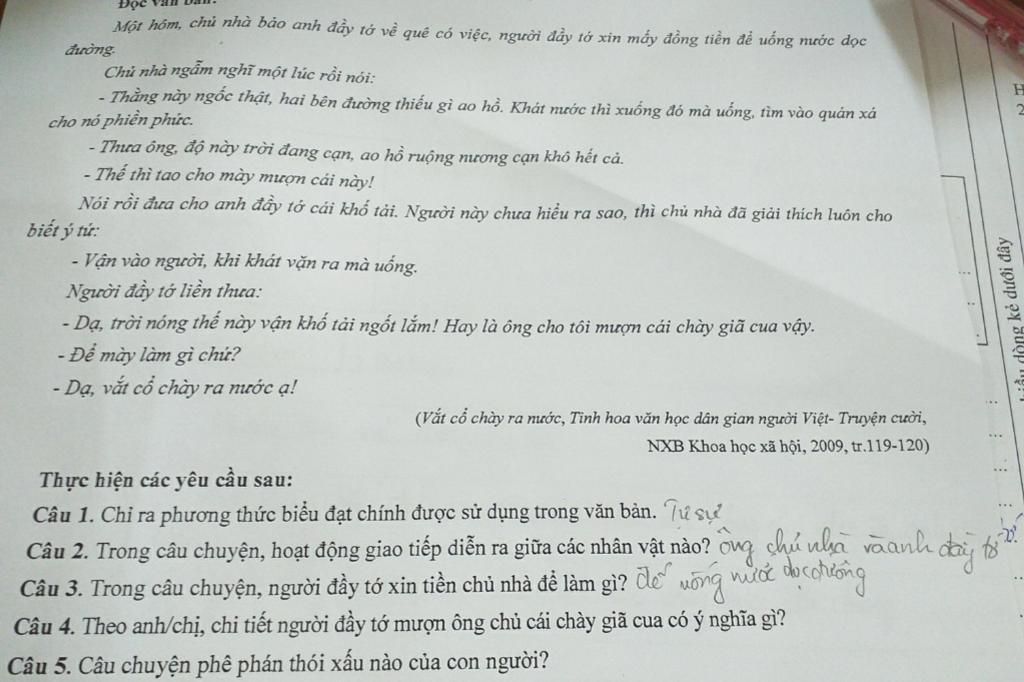 Đọc văn bản:
Một hôm, chủ nhà bảo anh đầy tớ về quê có việc, người đầy tớ xin mấy đồng tiền để uống nước dọc
đường.
Chủ nhà ngẫm nghĩ một lúc rồi nói:
- Thằng này ngốc thật, hai bên đường thiếu gì ao hồ. Khát nước thì xuống đó mà uống, tìm vào quán xá
cho nó phiền phức.
- Thưa ông, độ này trời đang cạn, ao hồ ruộng nương cạn khô hết cả.
- Thế thì tao cho mày mượn cái này!
Nói rồi đưa cho anh đầy tớ cái khố tải. Người này chưa hiểu ra sao, thì chủ nhà đã giải thích luôn cho
biết ý tứ:
- Vận vào người, khi khát vặn ra mà uống.
Người đầy tớ liền thưa:
- Dạ, trời nóng thế này vận khố tải ngốt lắm! Hay là ông cho tôi mượn cái chày giã cua vậy.
- Để mày làm gì chứ?
- Dạ, vắt cổ chày ra nước ạ!
(Vắt cổ chày ra nước, Tinh hoa văn học dân gian người Việt- Truyện cười,
NXB Khoa học xã hội, 2009, tr.119-120)
Thực hiện các yêu cầu sau:
Câu 1. Chỉ ra phương thức biểu đạt chính được sử dụng trong văn bản. Tự sự
Câu 2. Trong câu chuyện, hoạt động giao tiếp diễn ra giữa các nhân vật nào? ông chủ nhà và anh đầy tớ
Câu 3. Trong câu chuyện, người đầy tớ xin tiền chủ nhà để làm gì? Để uống nước dọc đường
Câu 4. Theo anh/chị, chi tiết người đầy tớ mượn ông chủ cái chày giã cua có ý nghĩa gì?
Câu 5. Câu chuyện phê phán thói xấu nào của con người?
H
2
dòng kẻ dưới đây